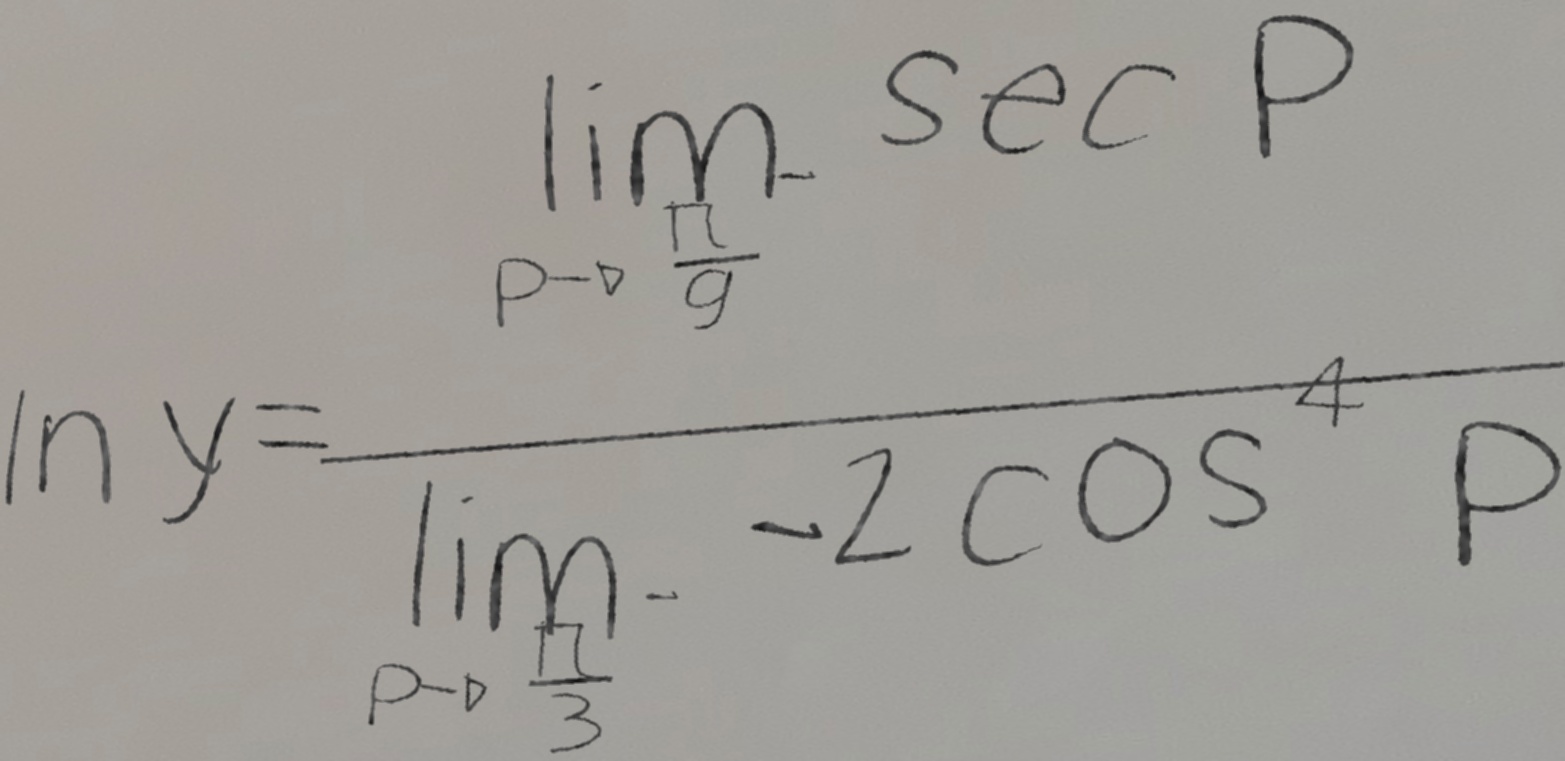 \ln y = \frac{\lim_{p \to \frac{\pi}{9}^-} \sec p}{\lim_{p \to \frac{\pi}{3}^-} -2\cos^4 p}